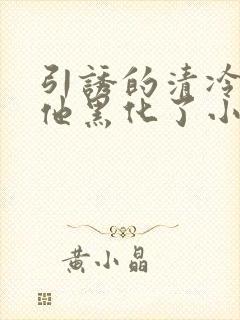 引誘的清冷
他黑化了小
黄小晶